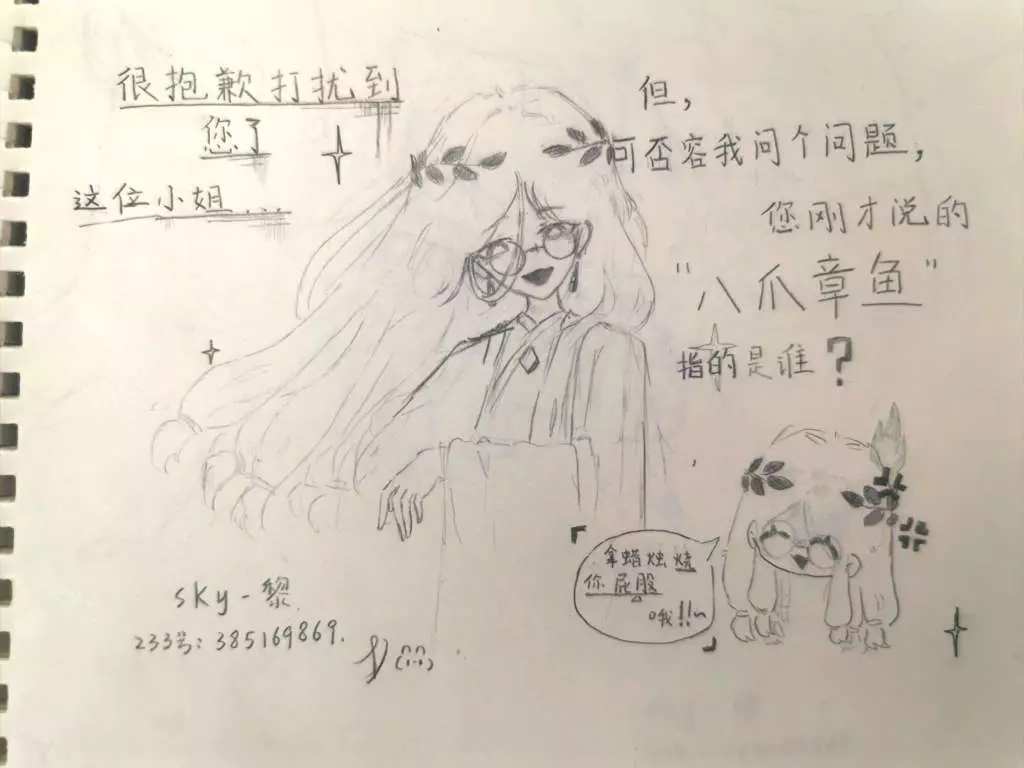 很抱歉打扰到
您了
这位小姐....
但，
可否容我问个问题，
您刚才说的
"八爪章鱼"
指的是谁？
拿蜡烛烧
你屁股
哦!!~
sky-黎
233号：385169869.